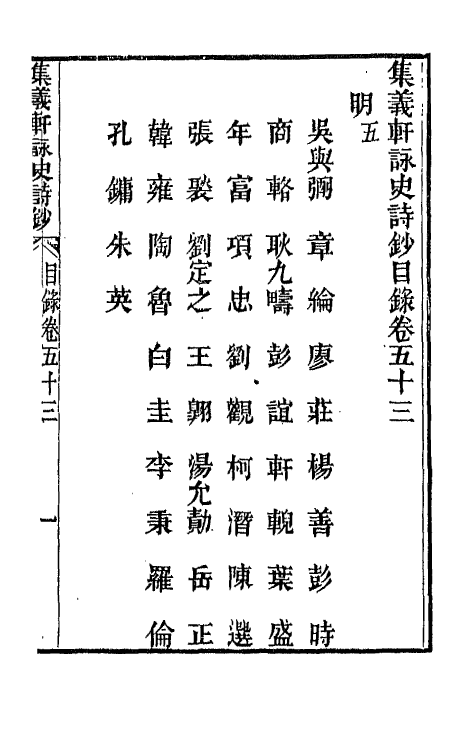 集義軒詠史詩鈔目錄卷五十三
明五
吳與弼 章綸 廖莊 楊善 彭時
商輅 耿九疇 彭誼 軒輗 葉盛
年富 項忠 劉觀 柯潛 陳選
張褧 劉定之 王翺 湯允勣 岳正
韓雍 陶魯 白圭 李秉 羅倫
孔鏞 朱英
集義軒詠史詩鈔 目錄卷五十三 一